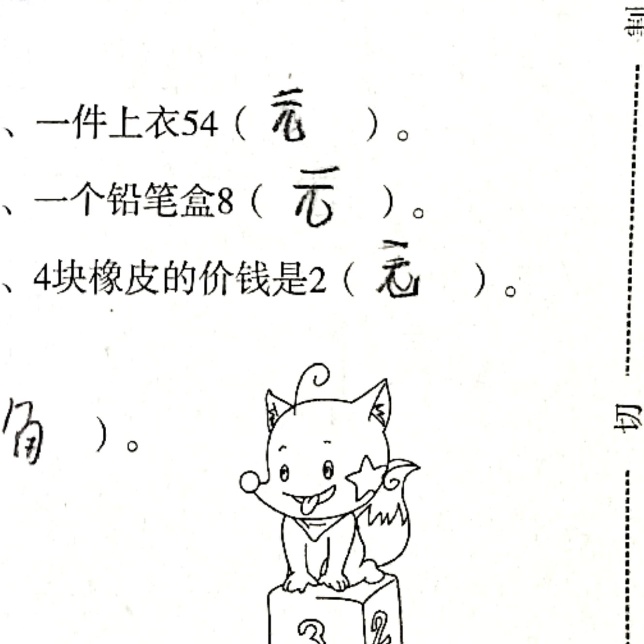 、一件上衣54（元）。
、一个铅笔盒8（元）。
、4块橡皮的价钱是2（元）。
角）。
3 2
切